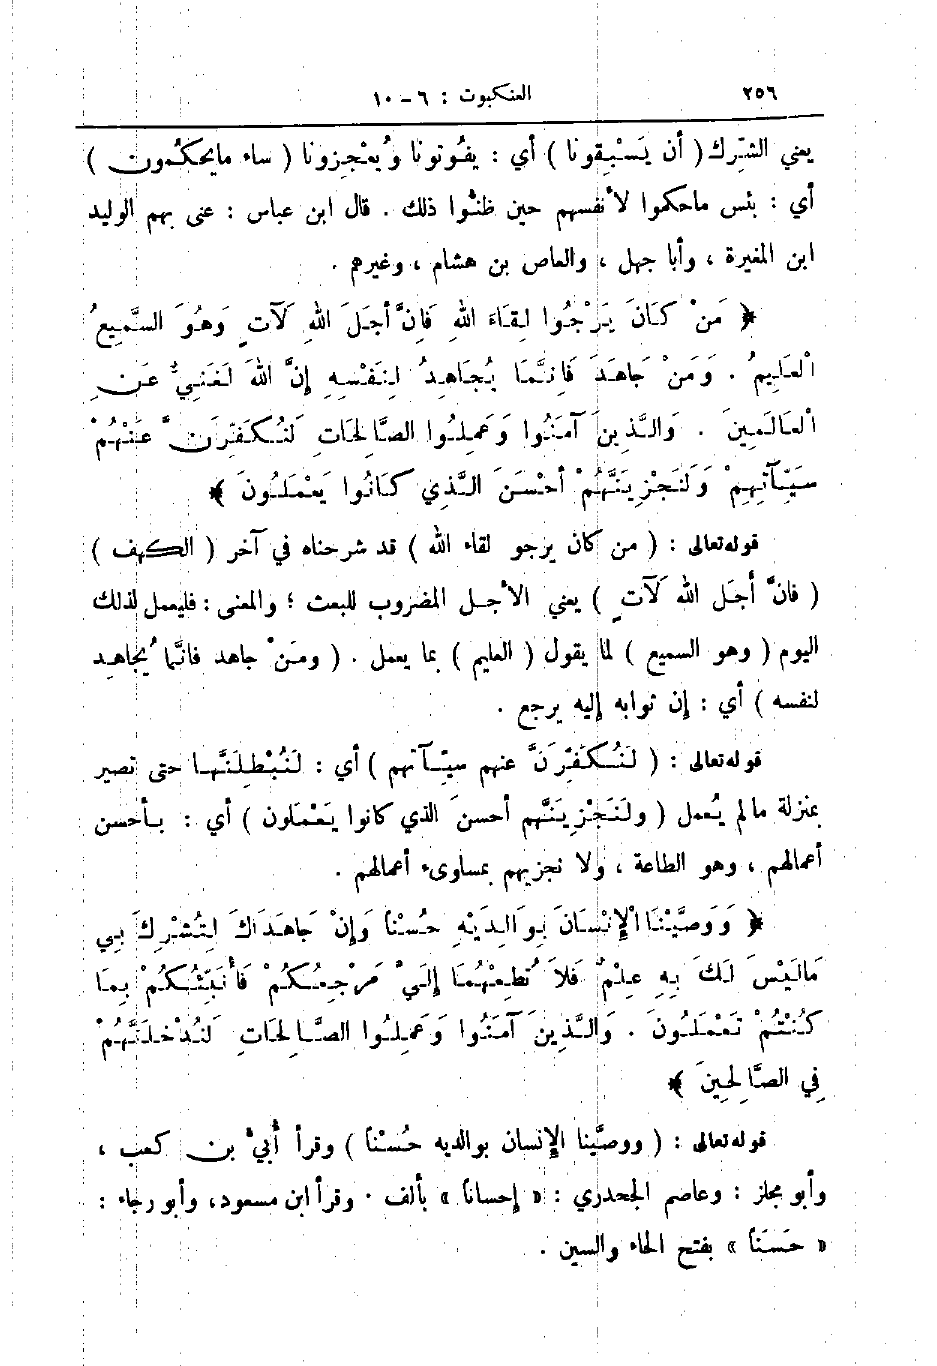 ٢٥٦ العنكبوت : ٦ – ١٠
يعني الشِّرك ( أن يَسْبِقونا ) أي : يفُوتونا ويُعْجِزونا ( ساء مايحكُمون )
أي : بئس ماحكموا لأنفسهم حين ظنُّوا ذلك . قال ابن عباس : عنى بهم الوليد
ابن المغيرة ، وأبا جهل ، والعاص بن هشام ، وغيرهم .
﴿ مَنْ كَانَ يَرْجُوا لِقَاءَ اللهِ فَإِنَّ أَجَلَ اللهِ لَآتٍ وَهُوَ السَّمِيعُ
الْعَلِيمُ . وَمَنْ جَاهَدَ فَإِنَّمَا يُجَاهِدُ لِنَفْسِهِ إِنَّ اللهَ لَغَنِيٌّ عَنِ
الْعَالَمِينَ . وَالَّذِينَ آمَنُوا وَعَمِلُوا الصَّالِحَاتِ لَنُكَفِّرَنَّ عَنْهُمْ
سَيِّآتِهِمْ وَلَنَجْزِيَنَّهُمْ أَحْسَنَ الَّذِي كَانُوا يَعْمَلُونَ ﴾
قوله تعالى : ( من كان يرجو لقاء الله ) قد شرحناه في آخر ( الكهف )
( فانَّ أجَل الله لَآتٍ ) يعني الأجل المضروب للبعث ؛ والمعنى : فليعمل لذلك
اليوم ( وهو السميع ) لما يقول ( العليم ) بما يعمل . ( ومَنْ جاهد فانَّما يُجاهِد
لنفسه ) أي : إن ثوابه إليه يرجع .
قوله تعالى : ( لَنُكَفِّرَنَّ عنهم سيِّآتهم ) أي : لَنُبْطِلَنَّها حتى تصير
بمنزلة مالم يُعمل ( ولَنَجْزِيَنَّهم أحسنَ الذي كانوا يَعْمَلون ) أي : بأحسن
أعمالهم ، وهو الطاعة ، ولا نجزيهم بمساوىء أعمالهم .
﴿ وَوَصَّيْنَا الْإِنْسَانَ بِوَالِدَيْهِ حُسْناً وَإِنْ جَاهَدَاكَ لِتُشْرِكَ بِي
مَالَيْسَ لَكَ بِهِ عِلْمٌ فَلَا تُطِعْهُمَا إِلَيَّ مَرْجِعُكُمْ فَأُنَبِّئُكُمْ بِمَا
كُنْتُمْ تَعْمَلُونَ . وَالَّذِينَ آمَنُوا وَعَمِلُوا الصَّالِحَاتِ لَنُدْخِلَنَّهُمْ
فِي الصَّالِحِينَ ﴾
قوله تعالى : ( ووصَّينا الإنسان بوالديه حُسْناً ) وقرأ أُبيّ بن كعب ،
وأبو مجلز : وعاصم الجحدري : « إحساناً » بألف . وقرأ ابن مسعود، وأبو رجاء :
« حَسَناً » بفتح الحاء والسين .